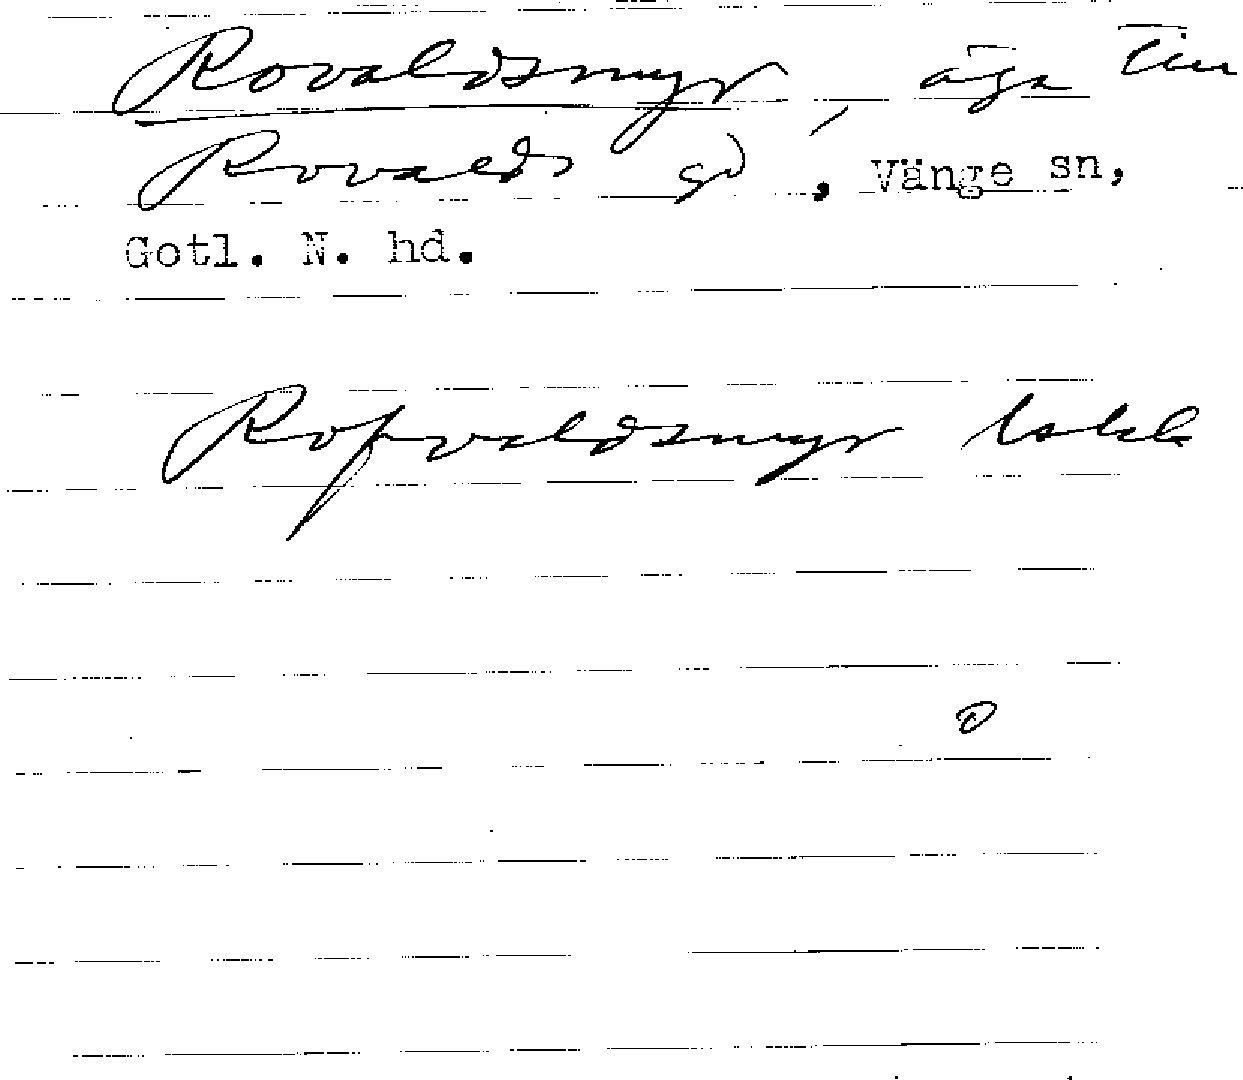 Rovaldsmyr, äga till
Rovalds gd, Vänge sn,
Gotl. N. hd.
Rofvaldsmyr